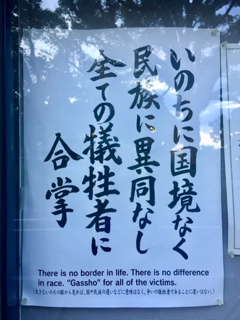 いのちに国境なく
民族に異同なし
全ての犠牲者に
合掌
There is no border in life. There is no difference
in race. "Gassho" for all of the victims.